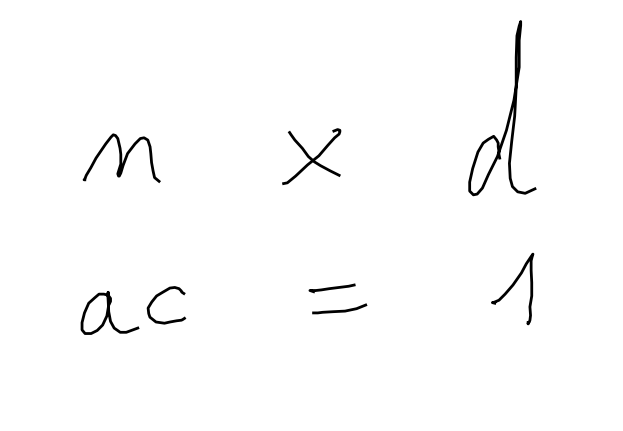 n x d
ac = 1